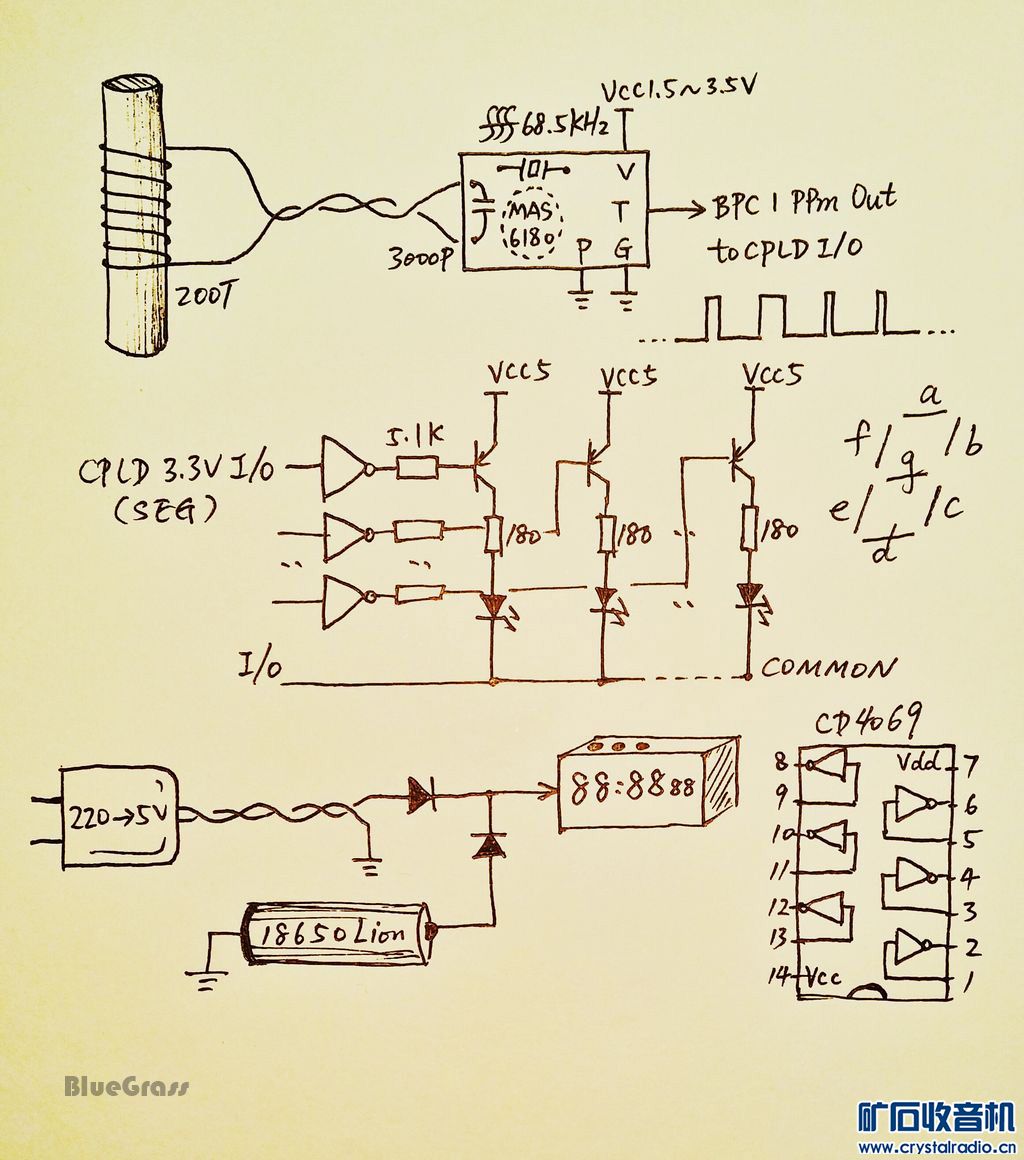 VCC1.5~3.5V
68.5KHz
V
MAS
6180
T
P
G
BPC 1 PPm Out
to CPLD I/O
3000P
200T
VCC5
VCC5
VCC5
5.1K
CPLD 3.3V I/O
(SEG)
180
180
180
a
f
b
g
e
c
d
I/O
COMMON
CD4069
220→5V
88:88 88
18650 Lion
8
Vdd
7
9
6
10
5
11
4
12
3
13
2
14
Vcc
1
BlueGrass
矿石收音机
www.crystalradio.cn